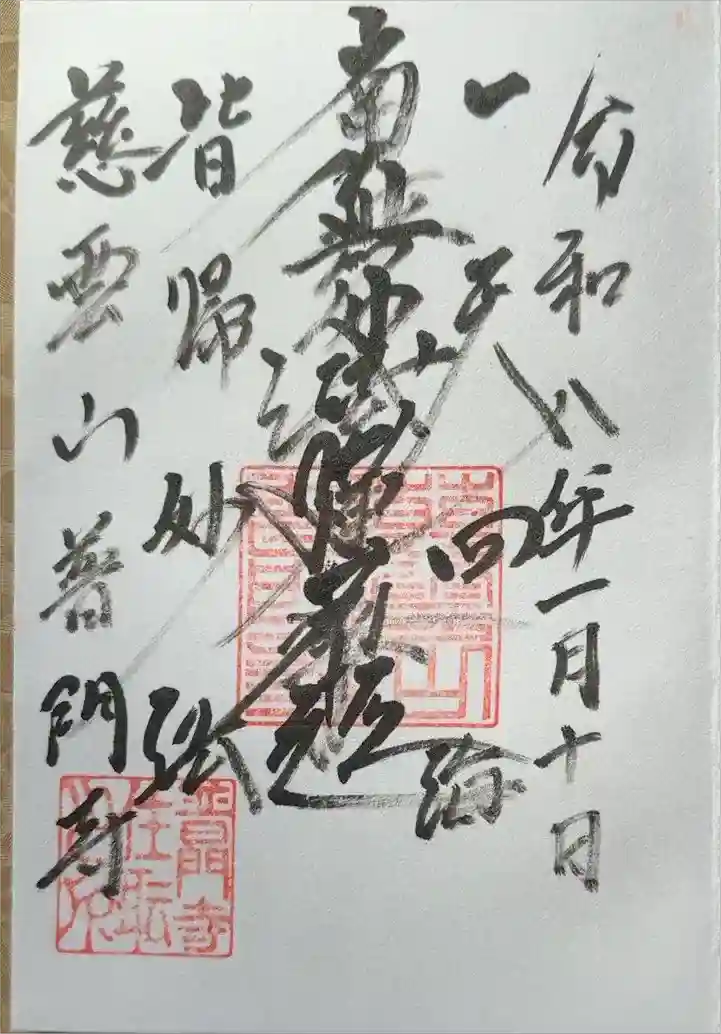 令和八年一月十日
一天四海
南無妙法蓮華経
皆帰妙法
慈雲山普門寺
普門寺